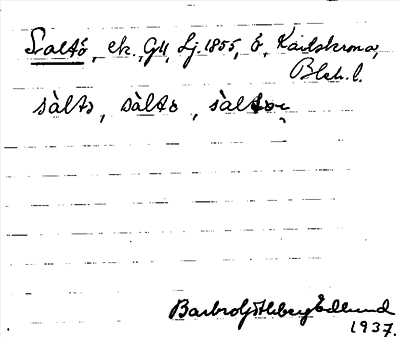 Saltö, ek. GK, Lj. 1855, ö, Karlskrona,
Blek. l.
sàltə, sàltə, sàltə
Barbro Götlberg Edlund
1937.